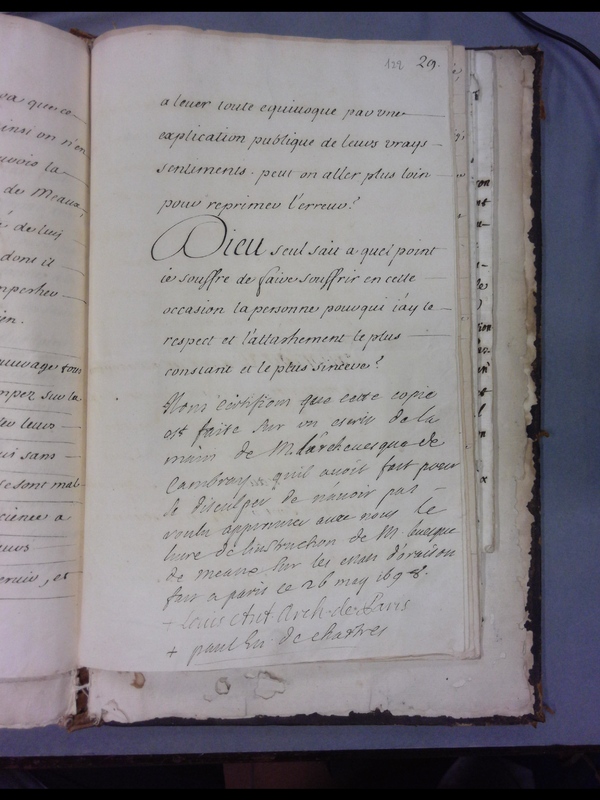 va que ce
insi on n'en
uvoir la
de Meaux,
de lui
dont il
en.
sauvage
mpez sur la
leurs
ui sans
se sont mal
cience a
122 29.
a lever toute equivoque par vne
explication publique de leurs vrays
sentiments. peut on aller plus loin
pour reprimer l'erreur?
Dieu seul sait a quel point
ie souffre de faire souffrir en cette
occasion la personne pour qui i'ay le
respect et l'attachement le plus
constant et le plus sincere?
Nous certifions que cette copie
est faite sur un escrit de la
main de M. larcheuesque de
Cambray quil auoit fait pour
se disculper de nauoir pas
voulu approuuer auec nous le
liure de linstruction de M. leuesque
de meaux sur les estats d'oraison
fait a paris ce 26 mey 1698.
+ Louis Ant. Arch. de Paris
+ paul Eu. de chartres